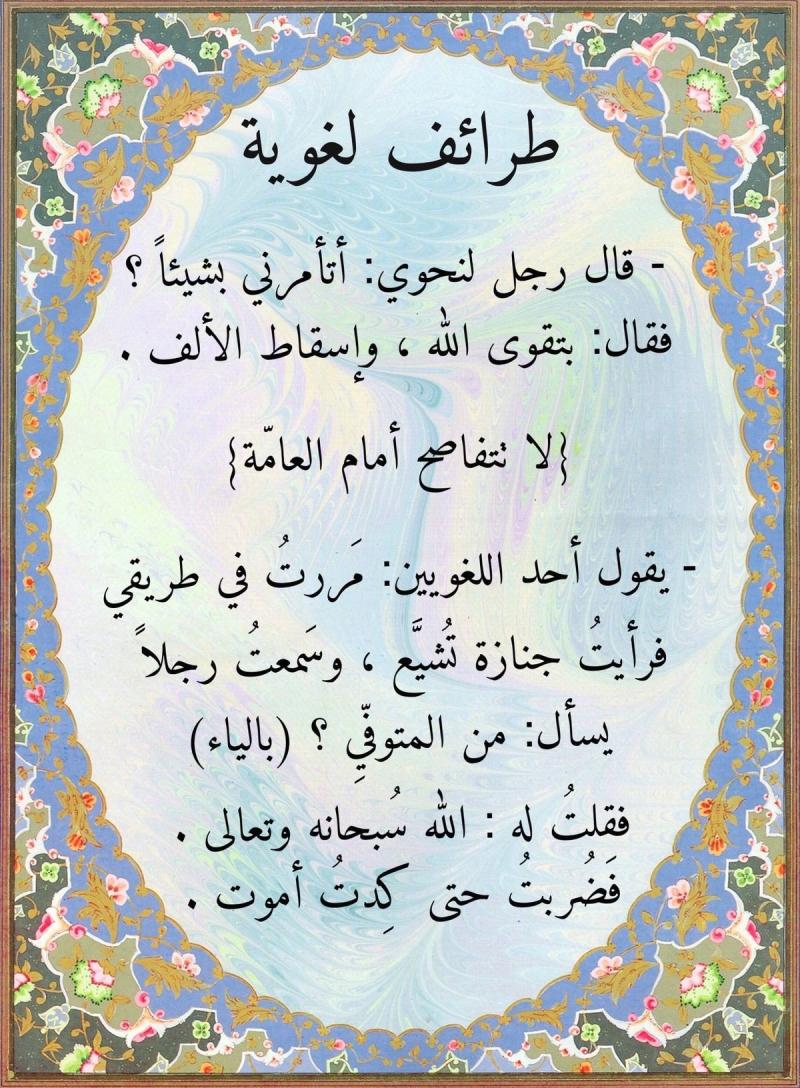 طرائف لغوية
- قال رجل لنحوي: أتأمرني بشيئاً ؟
فقال: بتقوى الله ، وإسقاط الألف .
{لا تتفاصح أمام العامّة}
- يقول أحد اللغويين: مَررتُ في طريقي
فرأيتُ جنازة تُشيَّع ، وسَمعتُ رجلاً
يسأل: من المتوفّيِ ؟ (بالياء)
فقلتُ له : الله سُبحانه وتعالى .
فَضُربتُ حتى كِدتُ أموت .